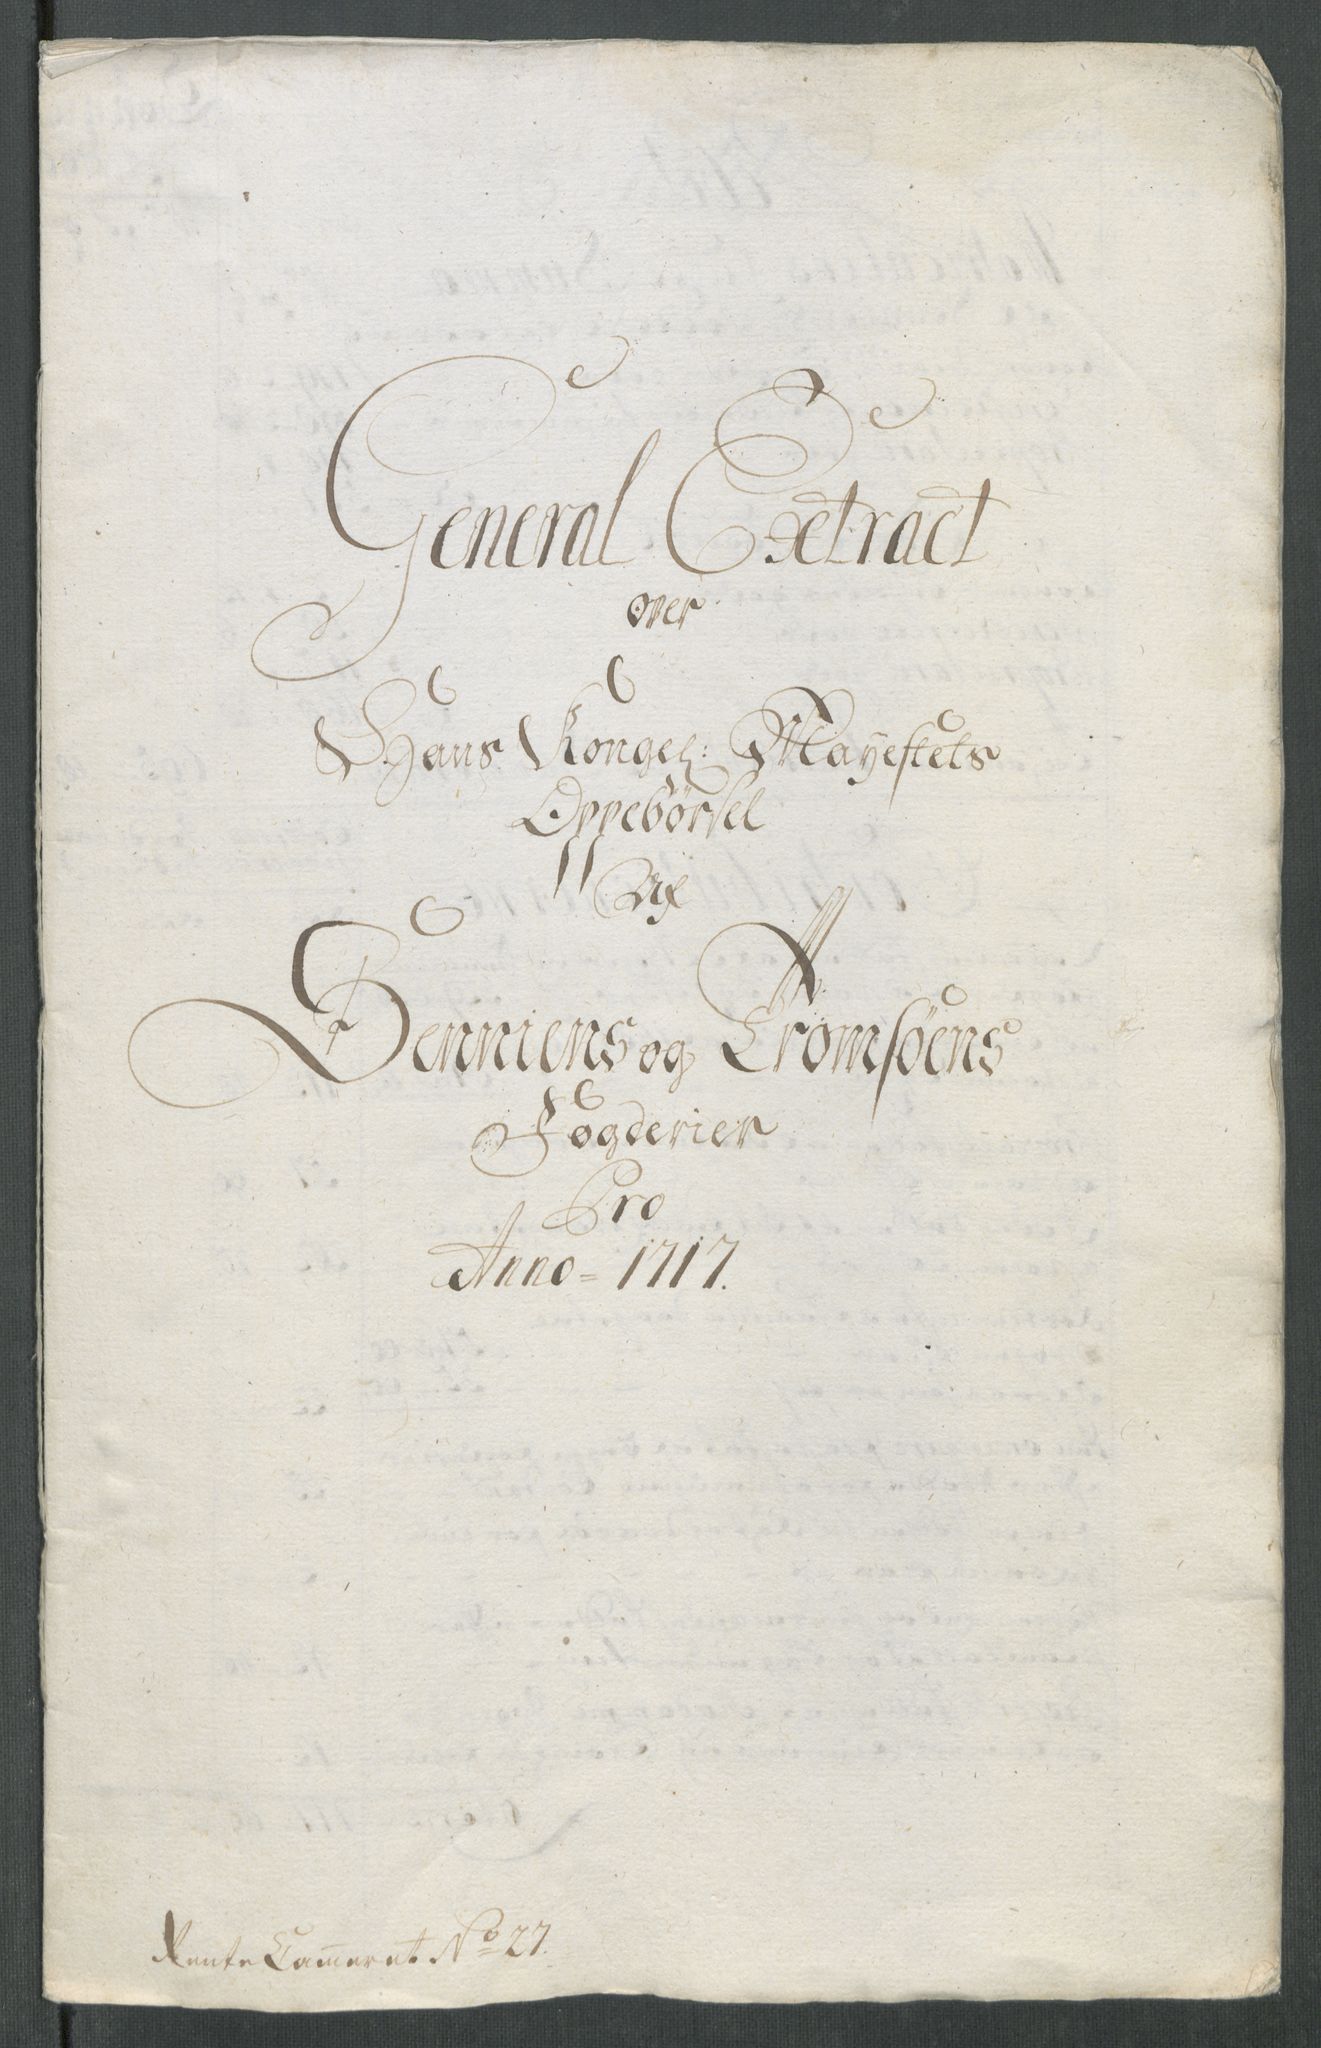 General Extract
over
Hans Kongel: Mayestets
Oppebörsel
Af
Senniens og Tromsöens
Fogderier
Pro
Anno = 1717.
Rente Cammeret No 27.